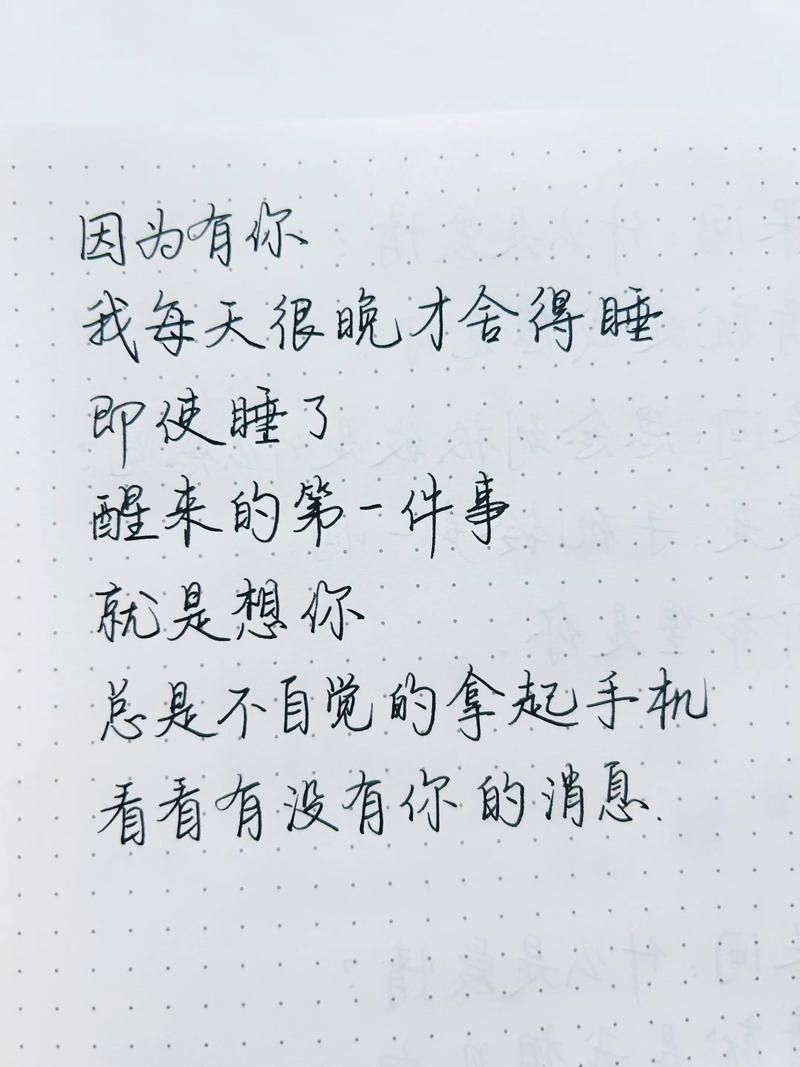 因为有你
我每天很晚才舍得睡
即使睡了
醒来的第一件事
就是想你
总是不自觉的拿起手机
看看有没有你的消息.